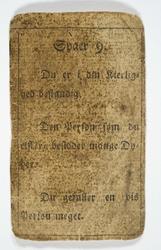 Spaer 9.
Du er i den Kierlig-
hed bestandig.
Den Person som du
elsker, besidder mange Dy-
der.
Du gefaller en vis
Person meget.